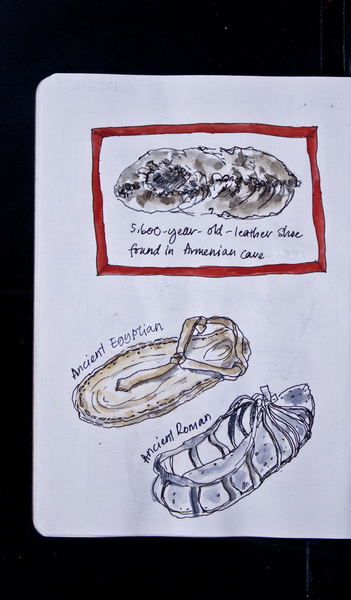 5,600-year-old-leather shoe
found in Armenian cave
Ancient Egyptian
Ancient Roman